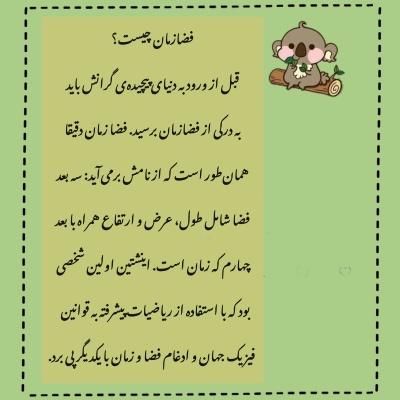 فضازمان چیست؟
قبل از ورود به دنیای پیچیده‌ی گرانش باید
به درکی از فضازمان برسید. فضا زمان دقیقا
همان‌طور است که از نامش برمی‌آید: سه بعد
فضا شامل طول، عرض و ارتفاع همراه با بعد
چهارم که زمان است. اینشتین اولین شخصی
بود که با استفاده از ریاضیات پیشرفته به قوانین
فیزیک جهان و ادغام فضا و زمان با یکدیگر پی برد.